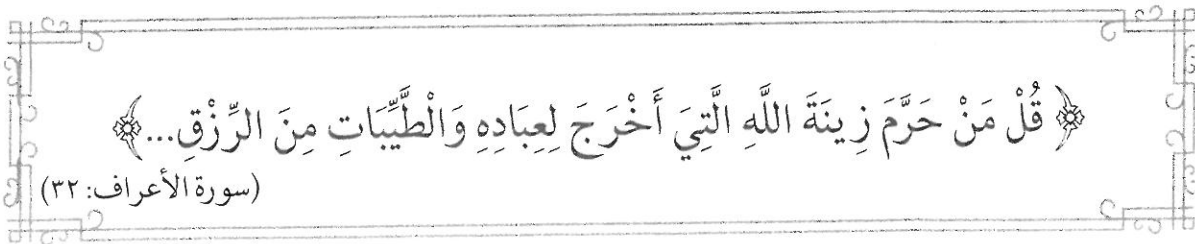 ﴿ قُلْ مَنْ حَرَّمَ زِينَةَ اللَّهِ الَّتِيَ أَخْرَجَ لِعِبَادِهِ وَالْطَّيِّبَاتِ مِنَ الرِّزْقِ...﴾
(سورة الأعراف: ٣٢)